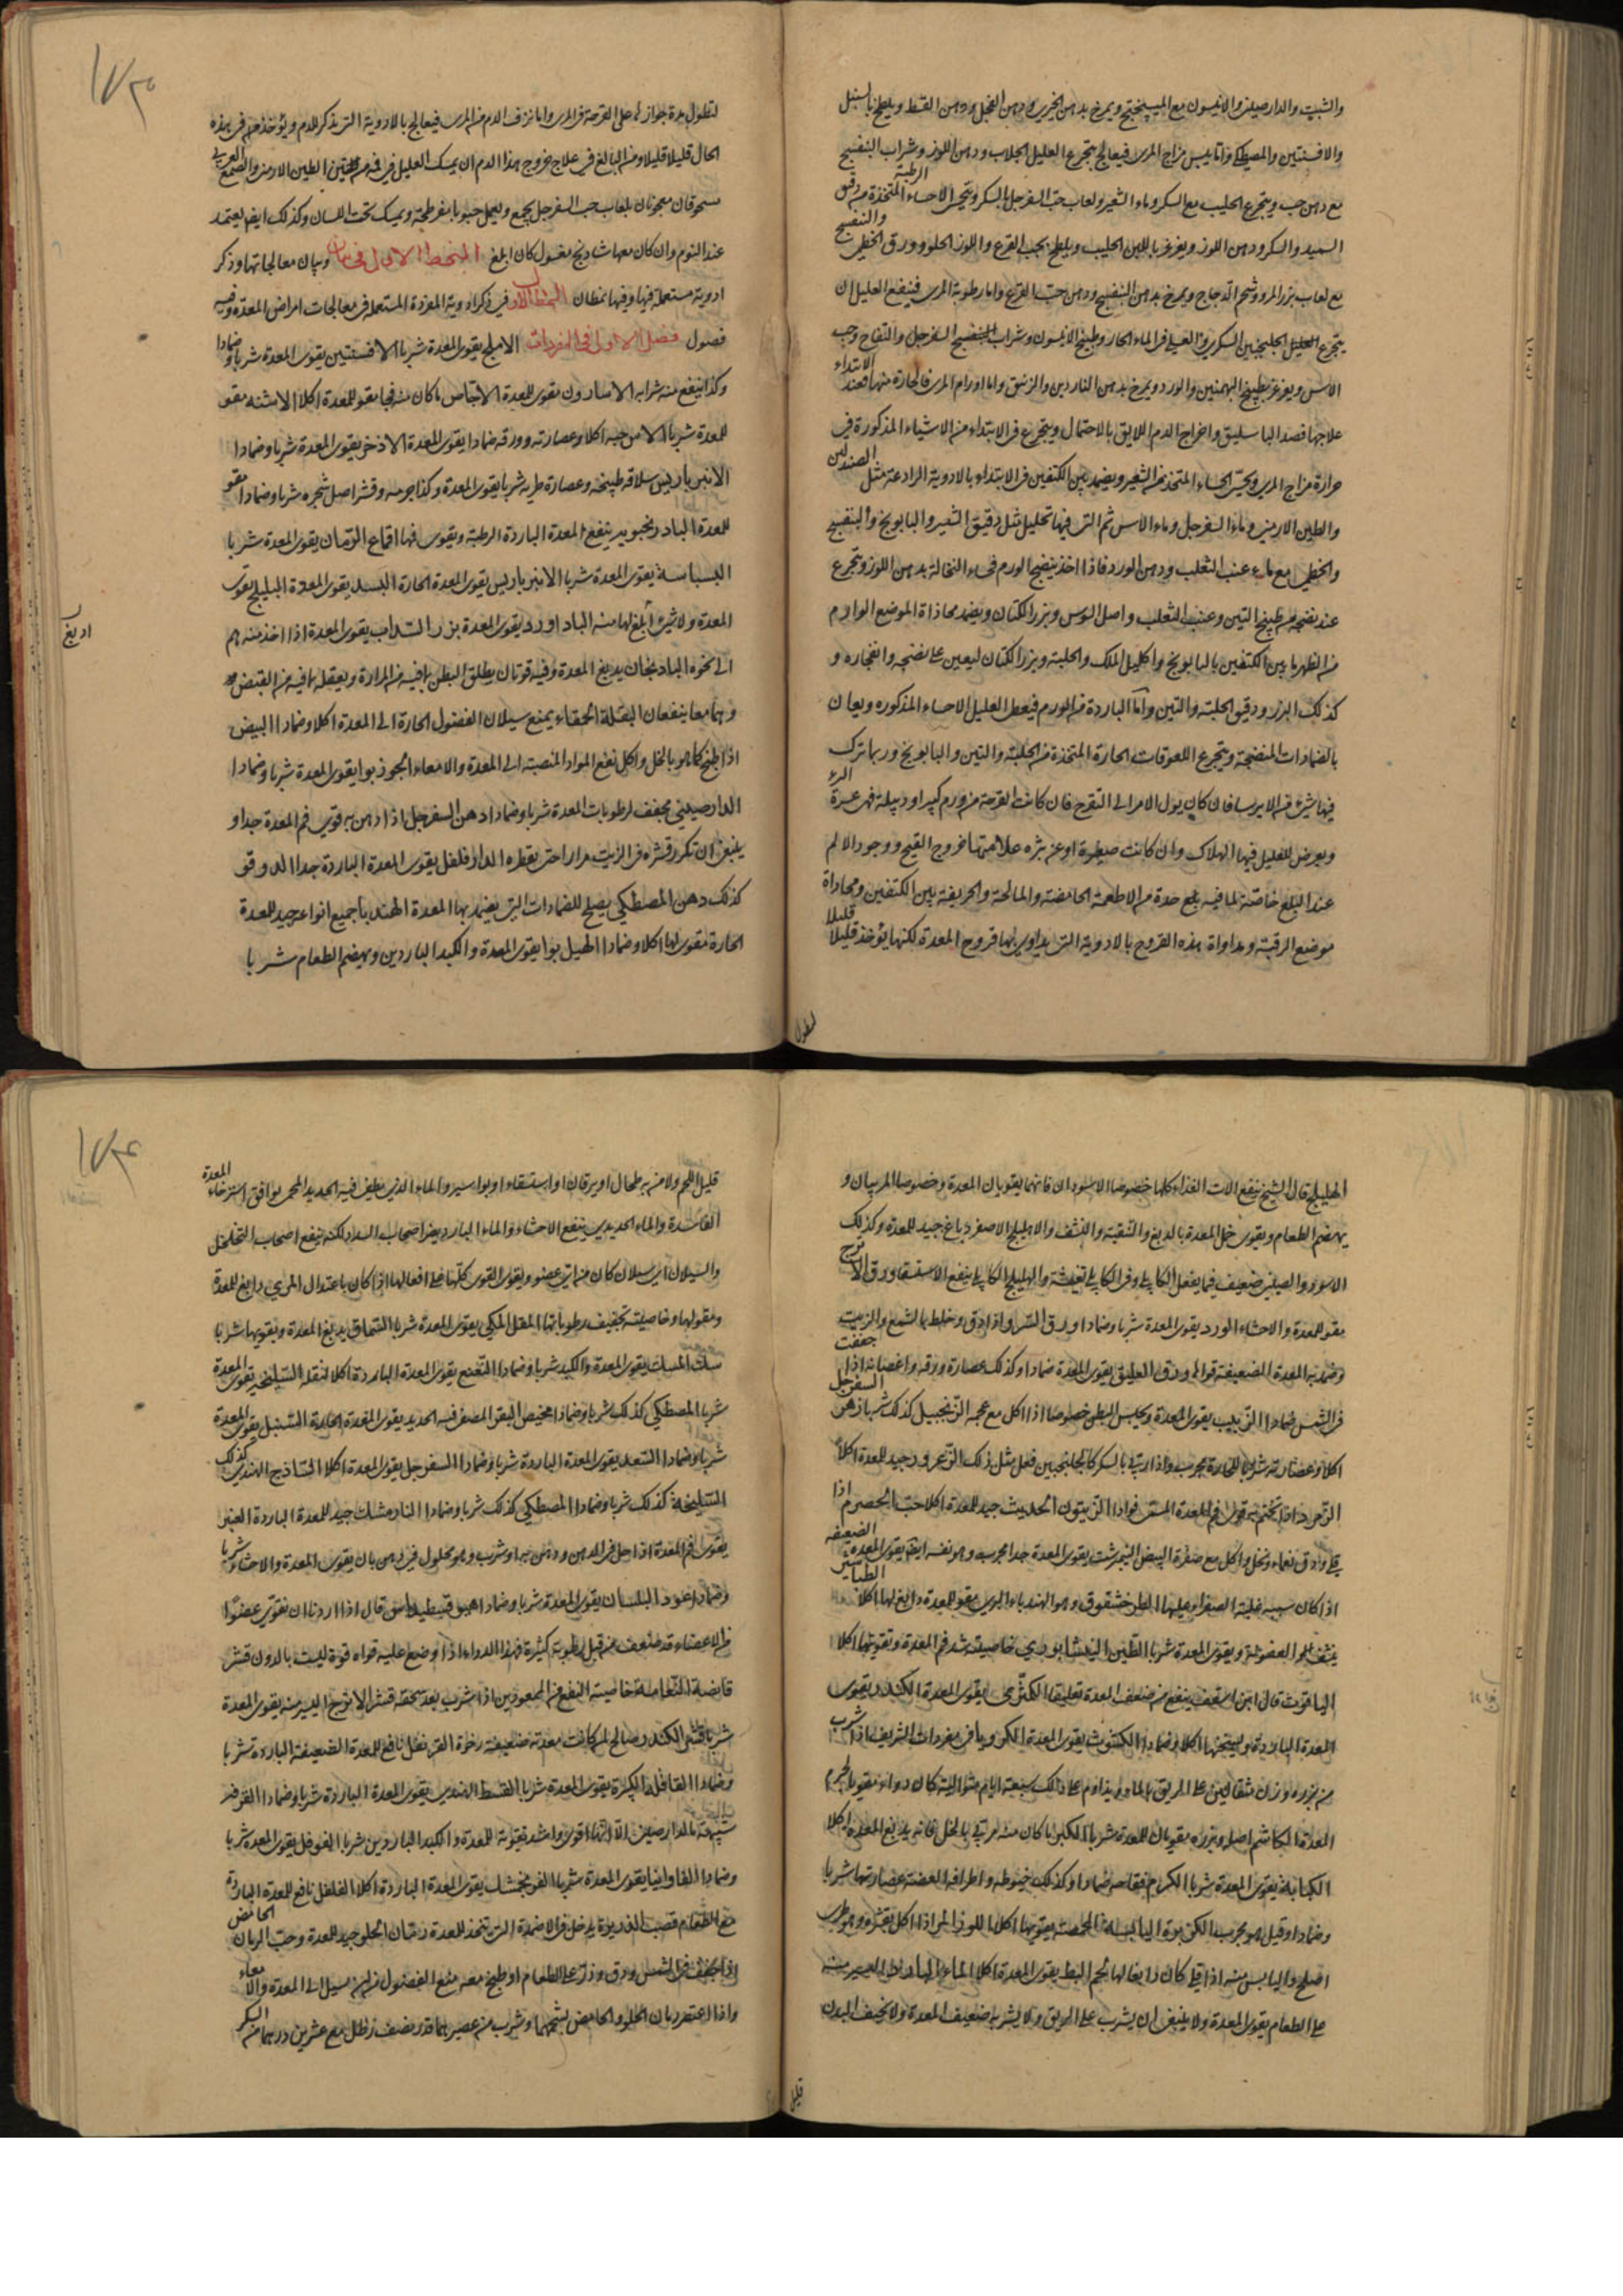 والشبت والدارصيني والانيسون مع الميبختج ويمرخ بدهن الخيري ودهن الفجل ودهن القسط ويلطخ بالسنبل
والافسنتين والمصطكي واما يبس مزاج المري فيعالج بتجرع العليل الجلاب ودهن اللوز وشراب البنفسج
مع دهن حب ويتجرع الحليب مع السكر وماء الشعير ولعاب حب السفرجل بالسكر ويتحسى الاحساء الرطبة المتخذة من دقيق
السميد والسكر ودهن اللوز ويغرغر باللبن الحليب ويلطخ بحب القرع واللوز الحلو وورق الخطمي والبنفسج
مع لعاب بزر المرو وشحم الدجاج ويمرخ بدهن البنفسج ودهن حب القرع واما رطوبة المري فينفع العليل ان
يتجرع الجلنجبين السكري او العسلي في الماء الحار وطبيخ الانيسون وشراب السفرجل والتفاح وحب
الاس ويغرغر بطبيخ البهمنين والورد ويمرخ بدهن الناردين والزنبق واما اورام المري فالحارة منها فعند الابتداء
علاجها فصد الباسليق واخراج الدم اللايق بالاحتمال ويتجرع في الابتداء من الاشياء المذكورة في
حرارة مزاج المري ويتحسى الحساء المتخذ من الشعير ويضمد بين الكتفين في الابتداء بالادوية الرادعة مثل الصندلين
والطين الارمني وماء السفرجل وماء الاس ثم التي فيها تحليل مثل دقيق الشعير والبابونج والبنفسج
والخطمي مع ماء عنب الثعلب ودهن الورد فاذا اخذ ينضج الورم فماء النخالة بدهن اللوز ويتجرع
عند نضجه من طبيخ التين وعنب الثعلب واصل السوس وبزر الكتان ويضمد محاذاة الموضع الوارم
من الظهر ما بين الكتفين بالبابونج واكليل الملك والحلبة وبزر الكتان ليعين على نضجه وانفجاره و
كذلك البزر ودقيق الحلبة والتين واما الباردة من الورم فيعطى العليل الاحساء المذكوره ويعان
بالضمادات المنضجة ويتجرع اللعوقات الحارة المتخذة من الحلبة والتين والبابونج وربما ترك
فيها شيء من الايرسا فان كان يول الامر الى التقرح فان كانت القرحة من ورم كبير او دبيلة فهي عسرة البرء
ويعرض للعليل فيها الهلاك وان كانت صغيرة او عن بثره علامتها خروج القيح ووجود الالم
عند البلع خاصة لما فيه بلع حدة من الاطعمة الحامضة والمالحة والحريفة بين الكتفين ومحاذاة
موضع الرقبة ومداواة هذه القروح بالادوية التي يداوى بها قروح المعدة لكنها يؤخذ قليلا قليلا
لتطول
لتطول مدة جوازها على القرحة في المري واما نزف الدم من المري فيعالج بالادوية التي تذكر للدم ويؤخذ في هذه
الحال قليلا قليلا ومن البالغ في علاج خروج هذا الدم ان يمسك العليل في فمه الطين الارمني والصمغ العربي
مسحوقان معجونان بلعاب حب السفرجل يجمع ويعمل حبوبا مفرطحة ويمسك تحت اللسان وكذلك ايضا يعتمد
عند النوم وان كان معها شادنج مغسول كان ابلغ وبيان معالجاتها وذكر
ادوية مستعملة فيها وفيها نمطان النمط الاول في ذكر ادوية المفردة المستعملة في معالجات امراض المعدة وفيه
فصول فصل الاول في المفردات الاملج يقوى المعدة شربا الافسنتين يقوى المعدة شربا وضمادا
وكذا ينفع منه شرابه الاسارون مقوى للمعدة الاجاص ما كان منه فجا مقو للمعدة اكلا الاشنه مقو
للمعدة شربا الاس حبه اكلا وعصارته وورقه ضمادا يقوى المعدة الاذخر يقوى المعدة شربا وضمادا
الانبرباريس سلاقة طبيخه وعصارة طريه شربا يقوى المعدة وكذا جرمه وقشر اصل شجره شربا وضمادا مقو
للمعدة البادرنجبويه ينفع المعدة الباردة الرطبة ويقوى فمها اقماع الرمان يقوى المعدة شربا
البسباسة يقوى المعدة شربا الانبرباريس يقوى المعدة الحارة البسد يقوى المعدة البليلج يقوى
المعدة ولا شيء ابلغ لها منه الباداورد يقوى المعدة بزر السذاب يقوى المعدة اذا اخذ منه درهم
الى نحوه الباذنجان يدبغ المعدة وفيه قوتان يطلق البطن بما فيه من المرارة ويعقله بما فيه من القبض
وهما معا ينفعان البقلة الحمقاء يمنع سيلان الفضول الحارة الى المعدة اكلا وضمادا البيض
اذا طبخ كما هو بالخل واكل نفع المواد المنصبة الى المعدة والامعاء الجوزبوا يقوى المعدة شربا وضمادا
الدارصيني مجفف لرطوبات المعدة شربا وضمادا دهن السفرجل اذا دهن به قوى فم المعدة جدا و
ينبغي ان تكرر قشره في الزيت مرارا حتى يقطره الدارفلفل يقوى المعدة الباردة جدا الدوقو
كذلك دهن المصطكي يصلح للضمادات التي يضمد بها المعدة الهندبا جميع انواعه جيد للمعدة
الحارة مقوى لها اكلا وضمادا الهيل بوا يقوى المعدة والكبد الباردين ويهضم الطعام شربا
الهليلج قال الشيخ ينفع الات الغذاء كلها خصوصا الاسودان فانهما يقويان المعدة وخصوصا المربيان و
يهضم الطعام ويقوى خمل المعدة بالدبغ والتنقية والنشف والاهليلج الاصفر دباغ جيد للمعدة وكذلك
الاسود والصيني ضعيف فيما يفعل الكابلي وفي الكابلي تغشية والهليلج الكابلي ينفع الاستسقا ورق الاترج
مقو للمعدة والاحشاء الورد يقوى المعدة شربا وضمادا ورق السرو اذا دق وخلط بالشمع والزيت
وضمد به المعدة الضعيفة قواها ورق العليق يقوى المعدة ضمادا وكذلك عصارة ورقه واغصانه اذا جففت
في الشمس ضمادا الزبيب يقوى المعدة ويحبس البطن خصوصا اذا اكل مع عجمه الزنجبيل كذلك شربا زهر السفرجل
اكلا وعصارته شربا للحارة مجرب واذا ربي بالسكر كالجلنجبين فعل مثل ذلك الزعرور جيد للمعدة اكلا
الزمرد اذا تختم به قوى فم المعدة الزيتون الحديث جيد للمعدة اكلا حب الحصرم اذا
قلي ودق ونخل واكل مع صفرة البيض النيمرشت يقوى المعدة جدا مجرب وهو نفسه ايضا يقوى المعدة الضعيفة
اذا كان سببه غلبة الصفرا وميلها الطرخشقوق وهو الهندباء البري مقو للمعدة دابغ لها اكلا الطباشير
ينشف العفونة ويقوى المعدة شربا الطين النيسابوري خاصيته شد فم المعدة وتقويتها اكلا
الياقوت قال ابن ينفع من ضعف المعدة تعليقا الكمثرى يقوى المعدة الكندر يقوى
المعدة الباردة ويسخنها اكلا وضمادا الكشوث يقوى المعدة الكرويا في مفردات الشريف اذا شرب
من بزره وزن مثقالين على الريق بالماء ويداوم على ذلك سبعة ايام متوالية كان دواء مقويا لجرم
المعدة الكاشم اصله وبزره مقويان للمعدة شربا الكبر ما كان منه مربى بالخل فانه يدبغ المعدة اكلا
الكبابة يقوى المعدة شربا الكرم فقاحه ضمادا وكذلك خيوطه واطرافه الغضة عصارتها شربا
وضمادا وقيل هو مجرب الكزبرة اليابسة المحمصة يقويها اكلا اللوز المر اذا اكل بقشره وهو طري
اصلح واليابس منه اذا قلي كان دابغا لها لحم البط يقوى المعدة اكلا الماء البارد اليسير منه
على الطعام يقوى المعدة ولا ينبغي ان يشرب على الريق ولا يشربه ضعيف المعدة ولا نحيف البدن
قليل
قليل اللحم ولا من به طحال او يرقان او استسقاء او بواسير والماء الذي يطفى فيه الحديد المحمى يوافق استرخاء المعدة
الفاسدة والماء الحديدي ينفع الاحشاء والماء البارد يضر اصحاب السدد لكنه ينفع اصحاب التخلخل
والسيلان اي سيلان كان من اي عضو ويقوى القوى كلها على افعالها اذا كان باعتدال المري دابغ للمعدة
ومقو لها وخاصيته تجفيف رطوباتها المقل المكي يقوى المعدة شربا السماق يدبغ المعدة ويقويها شربا
سك المسك يقوى المعدة والكبد شربا وضمادا النعنع يقوى المعدة الباردة اكلا تنقله السليخه يقوى المعدة
شربا المصطكي كذلك شربا وضمادا مخيض البقر المطفى فيه الحديد يقوى المعدة الحارة السنبل يقوى المعدة
شربا وضمادا السعد يقوى المعدة الباردة شربا وضمادا السفرجل يقوى المعدة اكلا الساذج الهندي كذلك
السليخة كذلك شربا وضمادا المصطكي كذلك شربا وضمادا النارمشك جيد للمعدة الباردة العنبر
يقوى فم المعدة اذا حل في الدهن ودهن به او شرب وهو محلول في دهن بان يقوى المعدة والاحشاء شربا
وضمادا عود البلسان يقوى المعدة شربا وضمادا قال اذا اردنا ان نقوي عضوا
من الاعضاء قد ضعف من قبل رطوبة كثيرة فهذا الدواء اذا وضع عليه قواه قوة ليست بالدون قشر
قانصة النعامة خاصيته النفع من الممعودين اذا شرب بعد سحقه قشر الاترج اليسير منه يقوى المعدة
شربا قشر الكندر صالح لمن كانت معدته ضعيفة رخوة القرنفل نافع للمعدة الضعيفة الباردة شربا
وضمادا القاقلة الكبيرة يقوى المعدة شربا القسط الهندي يقوى المعدة الباردة شربا وضمادا القرفة
شبيهة بالدارصيني الا انها اقوى واشد تقوية للمعدة والكبد الباردين شربا الفوفل يقوى المعدة شربا
وضمادا الفاوانيا يقوى المعدة شربا الفرنجمشك يقوى المعدة الباردة اكلا الفلفل نافع للمعدة الباردة
مع الطعام قصب الذريرة يدخل في الاضمدة التي تتخذ للمعدة رمان الحلو جيد للمعدة وحب الرمان الحامض
اذا جفف في الشمس ودق وذر على الطعام او طبخ معه منع الفضول من ان يسيل الى المعدة والامعاء
واذا اعتصر رمان الحلو والحامض بشحمهما وشرب من عصيرهما قدر نصف رطل مع عشرين درهما من السكر